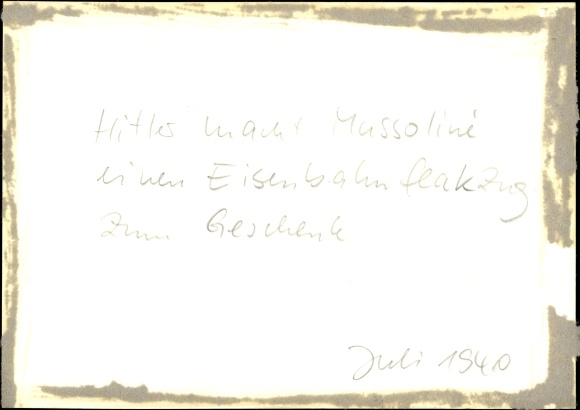 Hitler macht Mussolini
einen Eisenbahnflakzug
zum Geschenk
Juli 1940